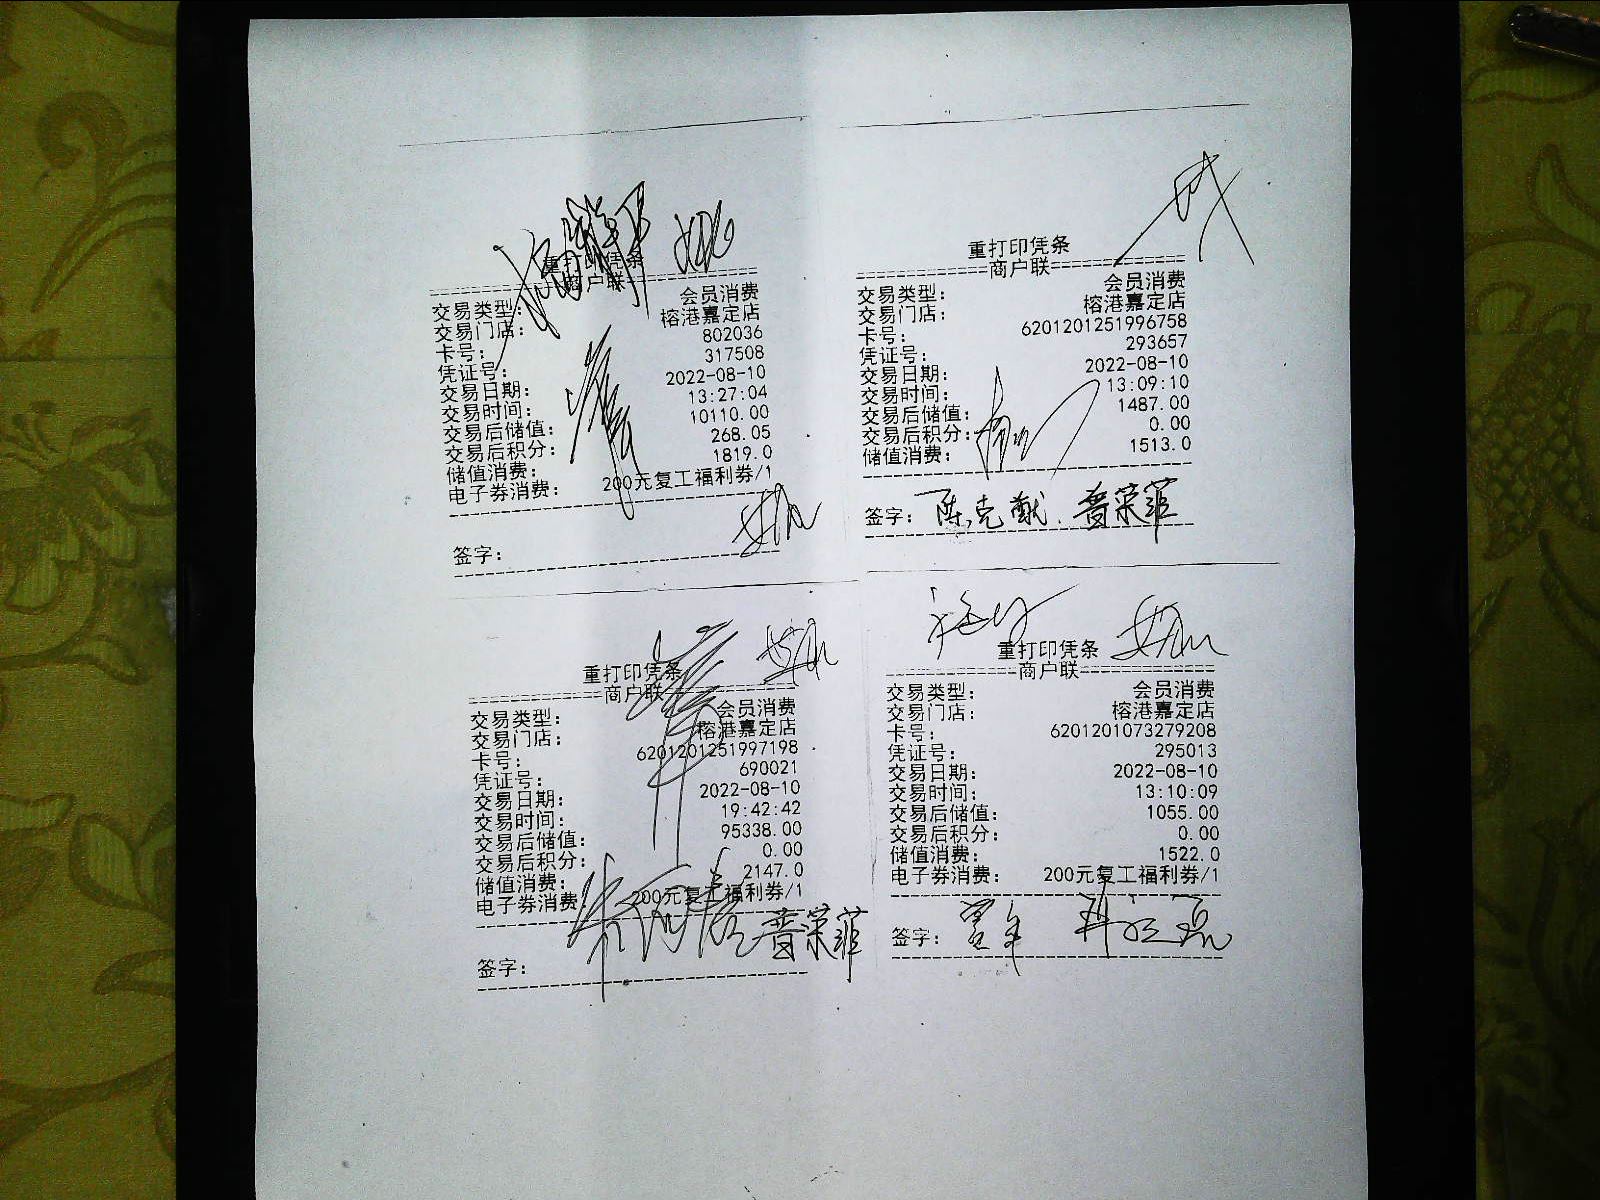 重打印凭条
商户联
交易类型： 会员消费
交易门店： 榕港嘉定店
卡号： 802036
凭证号： 317508
交易日期： 2022-08-10
交易时间： 13:27:04
交易后储值： 10110.00
交易后积分： 268.05
储值消费： 1819.0
电子券消费： 200元复工福利券/1
签字：
重打印凭条
商户联
交易类型： 会员消费
交易门店： 榕港嘉定店
卡号： 6201201251996758
凭证号： 293657
交易日期： 2022-08-10
交易时间： 13:09:10
交易后储值： 1487.00
交易后积分： 0.00
储值消费： 1513.0
签字： 陈克猷 普荣菲
重打印凭条
商户联
交易类型： 会员消费
交易门店： 榕港嘉定店
卡号： 6201201251997198
凭证号： 690021
交易日期： 2022-08-10
交易时间： 19:42:42
交易后储值： 95338.00
交易后积分： 0.00
储值消费： 2147.0
电子券消费： 200元复工福利券/1
普荣菲
签字：
重打印凭条
商户联
交易类型： 会员消费
交易门店： 榕港嘉定店
卡号： 6201201073279208
凭证号： 295013
交易日期： 2022-08-10
交易时间： 13:10:09
交易后储值： 1055.00
交易后积分： 0.00
储值消费： 1522.0
电子券消费： 200元复工福利券/1
签字：